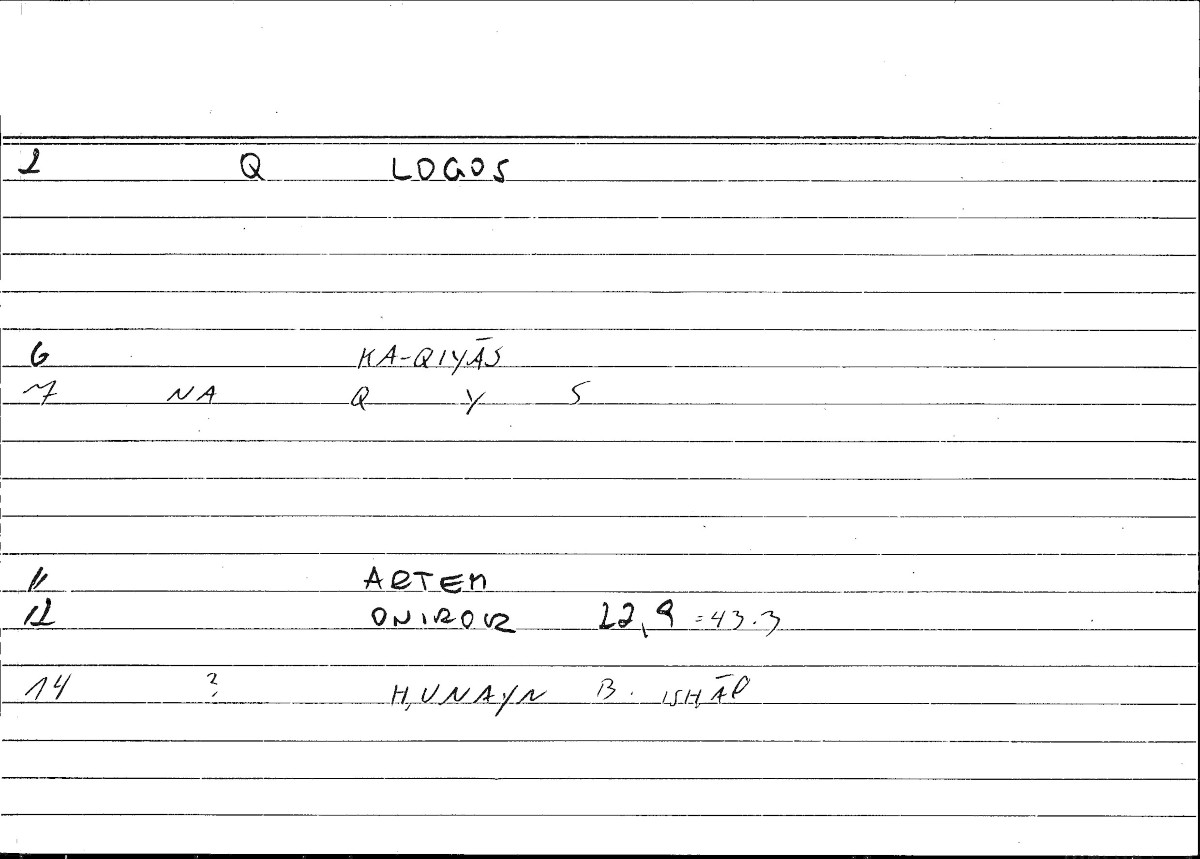 2 Q LOGOS
6 KA-QIYĀS
7 NA Q Y S
11 ARTEM
12 ONIROCR 22,9 = 43.3
14 ? H,UNAYN B. ISH,ĀQ